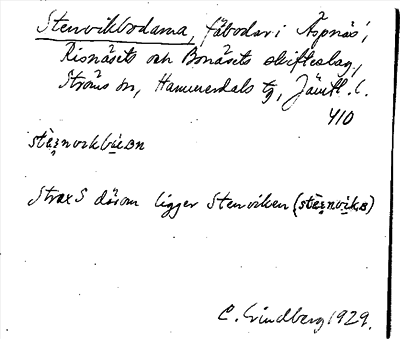 Stenvikbodarna, fäbodar i Äspnäs',
Risnäsets och Bonäsets skifteslag,
Ströms sn, Hammerdals tg, Jämtl. l.
410
Strax S därom ligger Stenviken
C. Lindberg 1929.